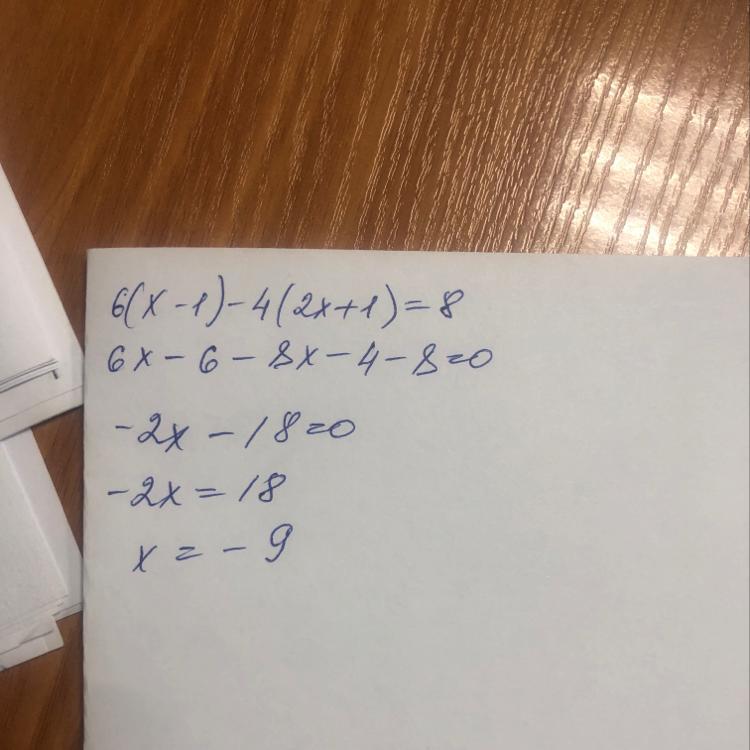 6(x-1)-4(2x+1)=8
6x-6-8x-4-8=0
-2x-18=0
-2x=18
x=-9